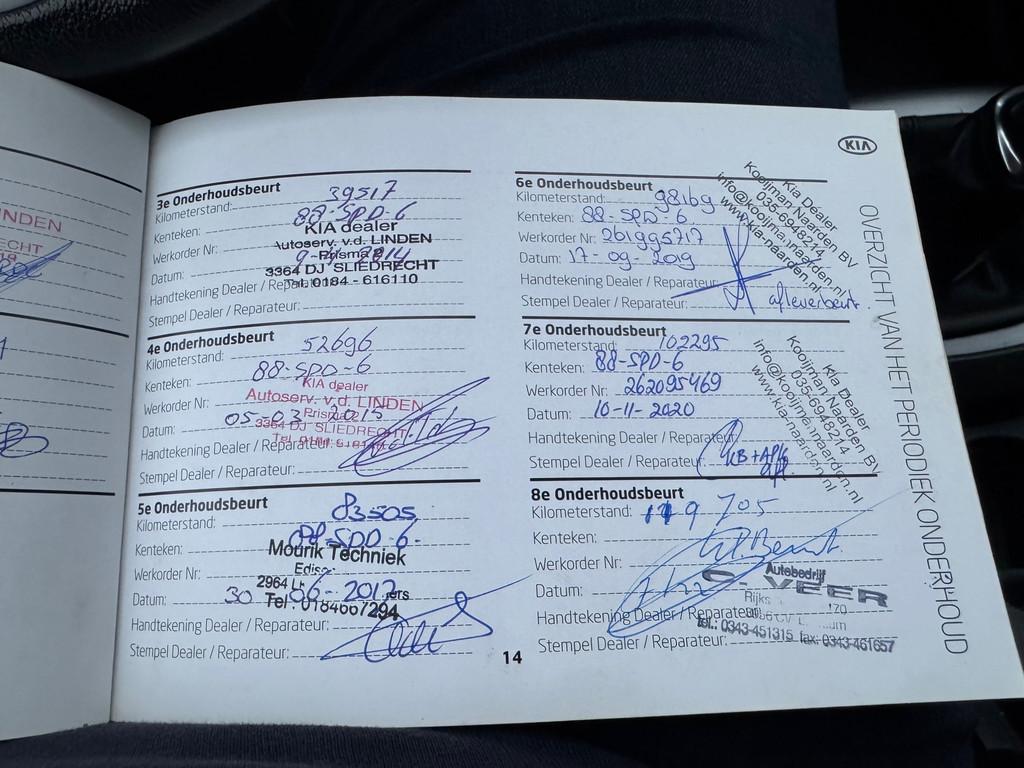 INDEN
RECHT
KIA
OVERZICHT VAN HET PERIODIEK ONDERHOUD
3e Onderhoudsbeurt
Kilometerstand: 39517
Kenteken: 88-SPD-6
KIA dealer
Werkorder Nr:
Autoserv. v.d. LINDEN
Prisma
Datum:
3364 DJ SLIEDRECHT
Handtekening Dealer / Reparateur:
Tel. 0184 - 616110
Stempel Dealer / Reparateur:
4e Onderhoudsbeurt
Kilometerstand: 52696
Kenteken: 88-SPD-6
KIA dealer
Werkorder Nr:
Autoserv. v.d. LINDEN
Datum: 05-03-2015
3364 DJ SLIEDRECHT
Handtekening Dealer / Reparateur:
Stempel Dealer / Reparateur:
5e Onderhoudsbeurt
Kilometerstand: 83505
Kenteken: 88-SPD-6
Mourik Techniek
Werkorder Nr:
2964
Datum: 30 06-2017
Tel.: 0184667294
Handtekening Dealer / Reparateur:
Stempel Dealer / Reparateur:
6e Onderhoudsbeurt
Kilometerstand: 98169
Kenteken: 88-SPD-6
Werkorder Nr: 261995717
Datum: 17-09-2019
Handtekening Dealer / Reparateur:
Stempel Dealer / Reparateur: afleverbeurt
Kia Dealer
Kooijman Naarden BV
035-6948214
info@kooijman.naarden.nl
www.kia-naarden.nl
7e Onderhoudsbeurt
Kilometerstand: 102295
Kenteken: 88-SPD-6
Werkorder Nr: 262095469
Datum: 10-11-2020
Handtekening Dealer / Reparateur:
Stempel Dealer / Reparateur:
Kia Dealer
Kooijman Naarden BV
035-6948214
info@kooijmannaarden.nl
www.kia-naarden.nl
8e Onderhoudsbeurt
Kilometerstand: 119705
Kenteken:
Werkorder Nr:
Autobedrijf
Datum:
VEER
Rijks
Handtekening Dealer / Reparateur:
tel.: 0343-451315 fax: 0343-461657
Stempel Dealer / Reparateur:
14